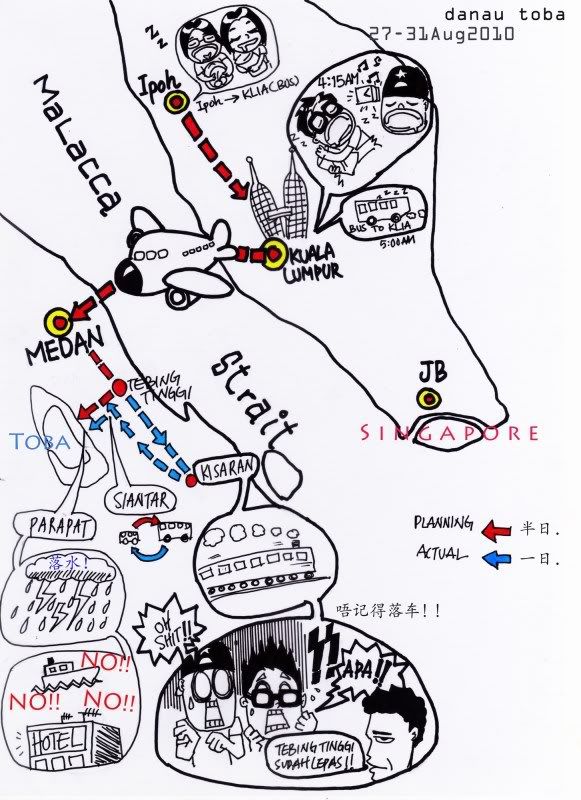 danau toba
27-31Aug2010
z z z
Ipoh
Ipoh → KLIA (BUS)
4:15AM
z z z
KUALA
LUMPUR
z z z z
BUS TO KLIA
5:00AM
Malacca
Strait
MEDAN
TEBING
TINGGI
JB
SINGAPORE
TOBA
KISARAN
SIANTAR
PARAPAT
PLANNING 半日.
ACTUAL 一日.
落水!
唔记得落车!!
OH
SHIT!!
APA!!
NO!!
NO!! NO!!
HOTEL
TEBING TINGGI
SUDAH LEPAS!!